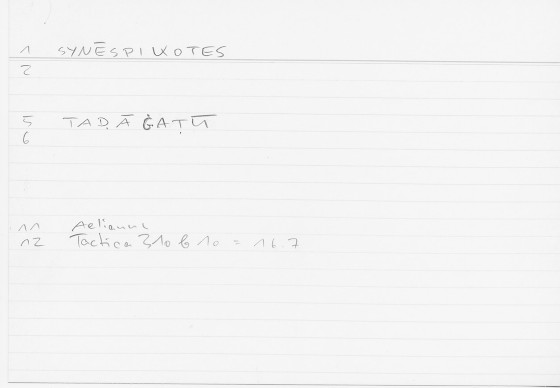 1 SYNĒSPIKOTES
2
5 TAḌĀĠAṬŪ
6
11 Aelianus
12 Tactica 310 b 10 = 16.7